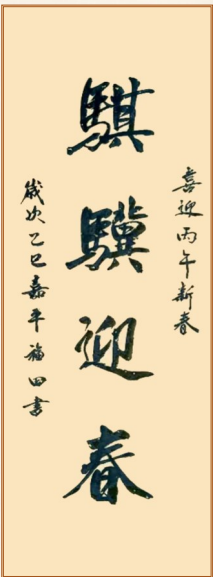 喜迎丙午新春
騏驥迎春
歲次乙巳嘉平福田書